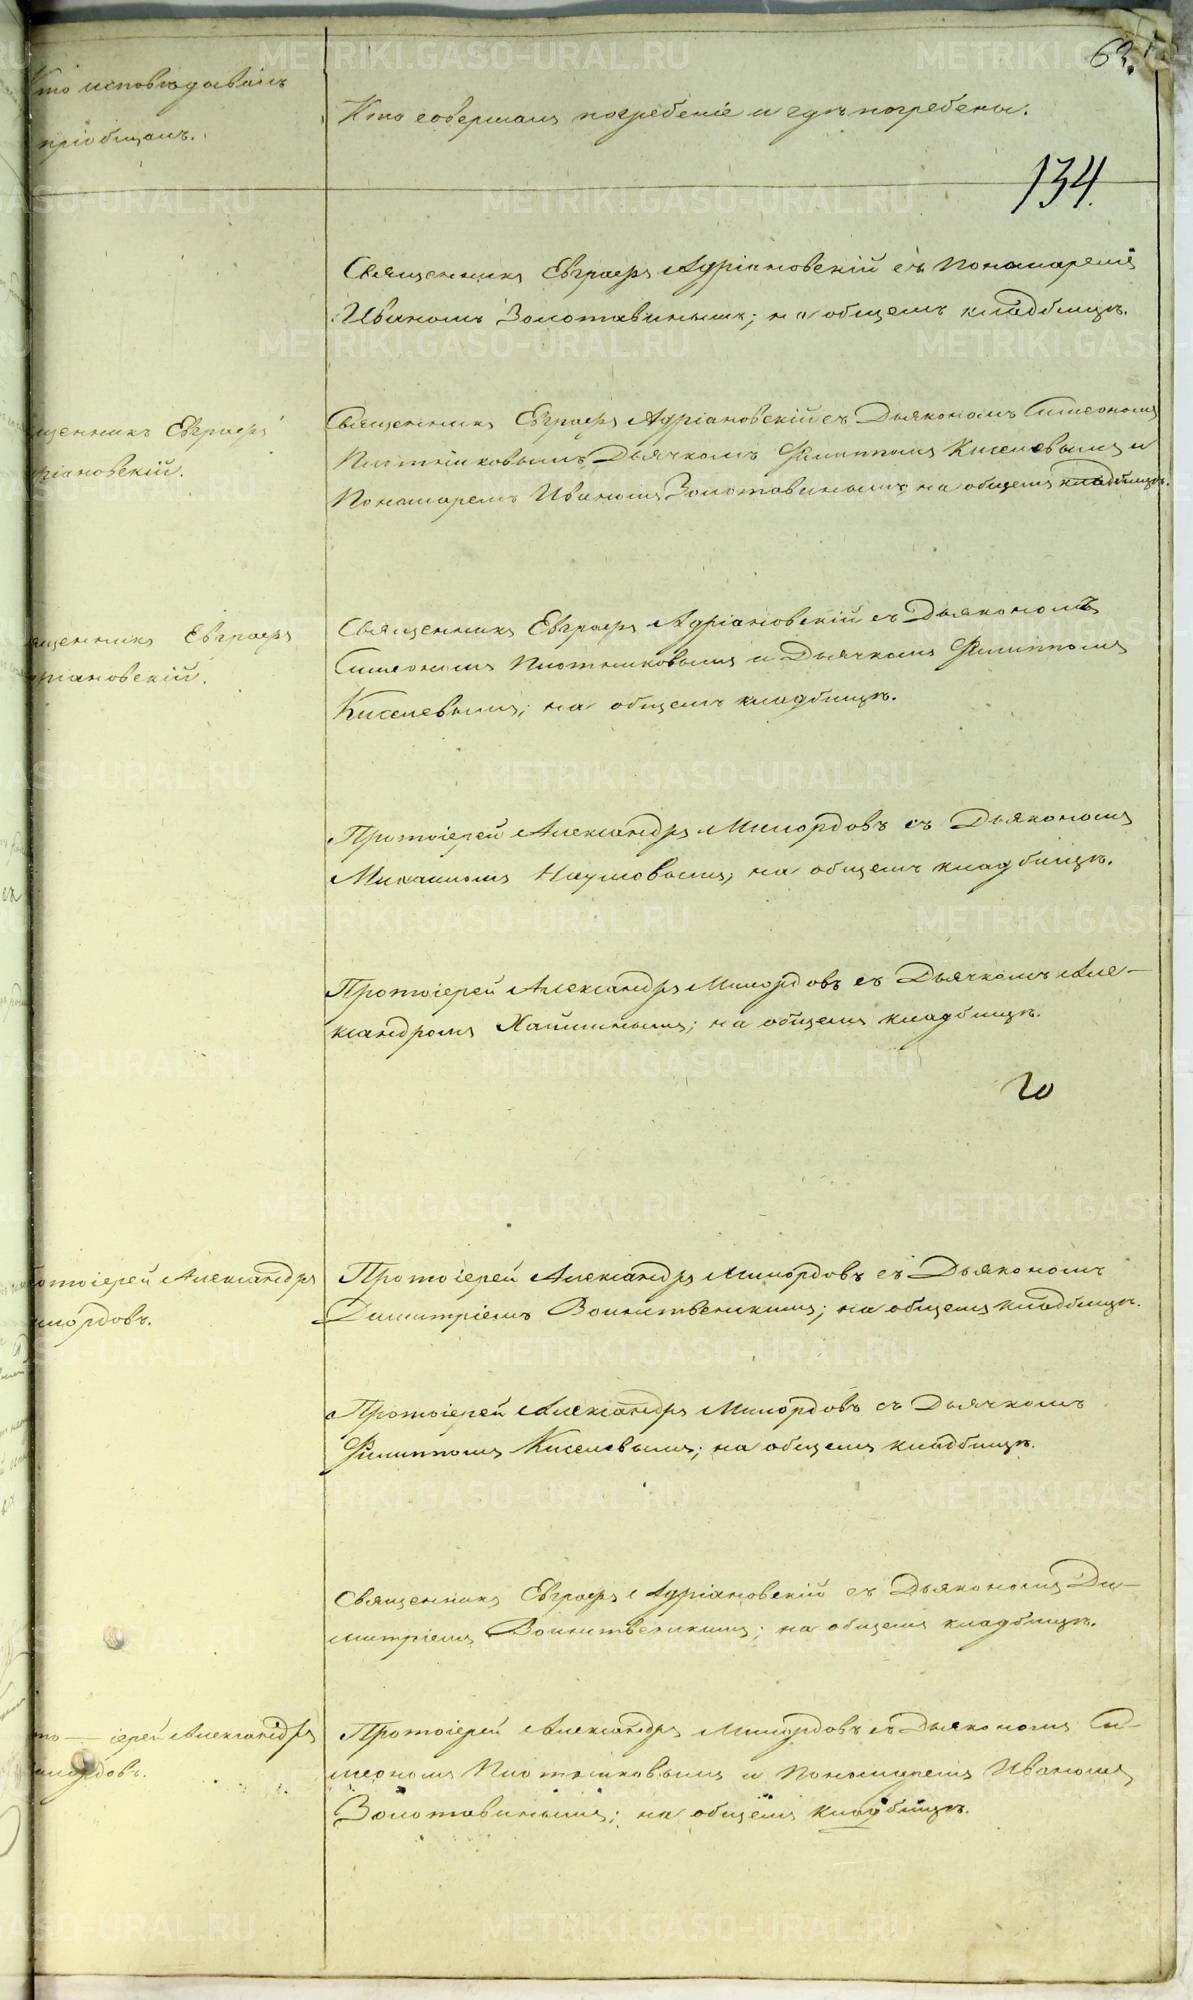 62.
Кто исповѣдывалъ
пріобщалъ.
Кто совершалъ погребеніе и гдѣ погребены.
134.
Священникъ Евграфъ Адріановскій съ Пономаремъ
Иваномъ Золотавинымъ; на общемъ кладбищѣ.
щенникъ Евграфъ
ріановскій.
Священникъ Евграфъ Адріановскій съ Дьякономъ Симеономъ
Плотниковымъ, Дьячкомъ Филиппомъ Киселевымъ и
Пономаремъ Иваномъ Золотавинымъ; на общемъ кладбищѣ.
ященникъ Евграфъ
ріановскій.
Священникъ Евграфъ Адріановскій съ Дьякономъ
Симеономъ Плотниковымъ и Дьячкомъ Филиппомъ
Киселевымъ; на общемъ кладбищѣ.
Протоіерей Александръ Милордовъ съ Дьякономъ
Михаиломъ Наумовымъ; на общемъ кладбищѣ.
Протоіерей Александръ Милордовъ съ Дьячкомъ Але-
ксандромъ Хайминымъ; на общемъ кладбищѣ.
отоіерей Александръ
лордовъ.
Протоіерей Александръ Милордовъ съ Дьякономъ
Димитріемъ Воинственскимъ; на общемъ кладбищѣ.
Протоіерей Александръ Милордовъ съ Дьячкомъ
Филиппомъ Киселевымъ; на общемъ кладбищѣ.
Священникъ Евграфъ Адріановскій съ Дьякономъ Ди-
митріемъ Воинственскимъ; на общемъ кладбищѣ.
то-іерей Александръ
лордовъ.
Протоіерей Александръ Милордовъ съ Дьякономъ Си-
меономъ Плотниковымъ и Пономаремъ Иваномъ
Золотавинымъ; на общемъ кладбищѣ.
METRIKI.GASO-URAL.RU